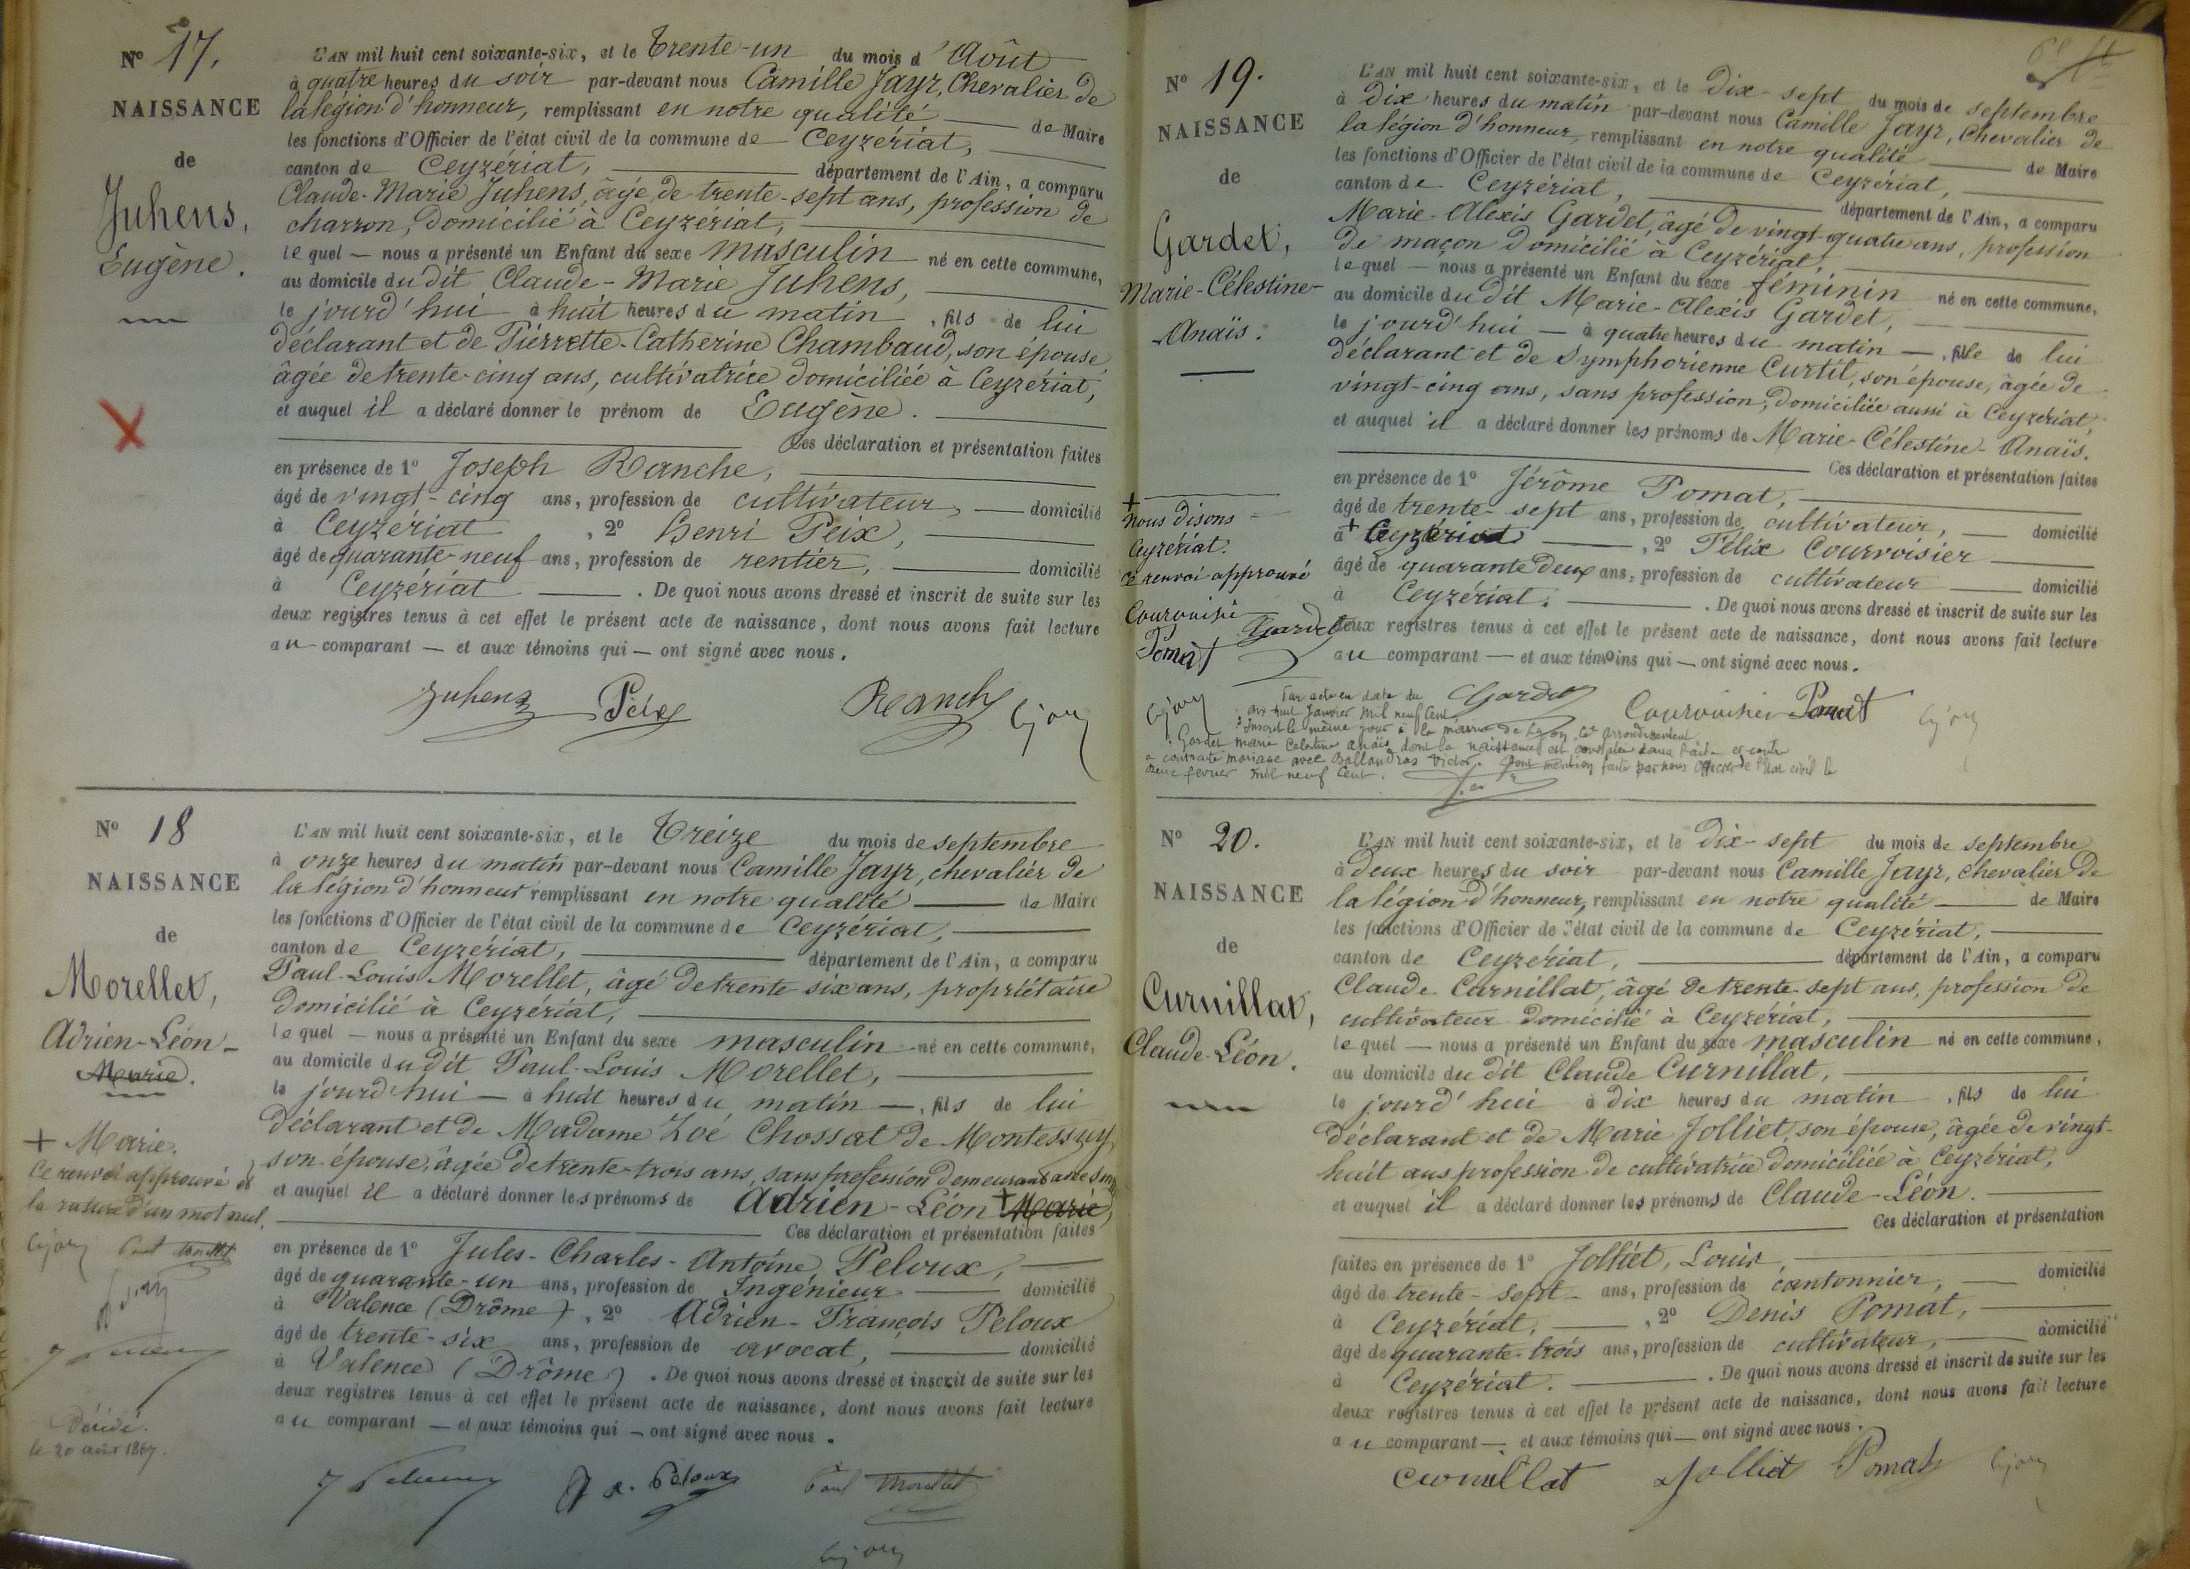 Nº 17.
NAISSANCE
de
Juhens,
Eugène.
L'AN mil huit cent soixante-six, et le Trente-un du mois d'Août
à quatre heures du soir par-devant nous Camille Jayr, Chevalier de
la légion d'honneur, remplissant en notre qualité de Maire
les fonctions d'Officier de l'état civil de la commune de Ceyzériat,
canton de Ceyzériat, département de l'Ain, a comparu
Claude-Marie Juhens, âgé de trente-sept ans, profession de
charron, domicilié à Ceyzériat,
le quel — nous a présenté un Enfant du sexe masculin né en cette commune,
au domicile du dit Claude-Marie Juhens,
le jourd'hui à huit heures du matin, fils de lui
déclarant et de Pierrette-Catherine Chambaud, son épouse,
âgée de trente-cinq ans, cultivatrice domiciliée à Ceyzériat,
et auquel il a déclaré donner le prénom de Eugène.
Ces déclaration et présentation faites
en présence de 1º Joseph Ranche,
âgé de vingt-cinq ans, profession de cultivateur, domicilié
à Ceyzériat, 2º Henri Peix,
âgé de quarante-neuf ans, profession de rentier, domicilié
à Ceyzériat. De quoi nous avons dressé et inscrit de suite sur les
deux registres tenus à cet effet le présent acte de naissance, dont nous avons fait lecture
au comparant — et aux témoins qui — ont signé avec nous.
Juhens Peix Ranche
Nº 18
NAISSANCE
de
Morellet,
Adrien-Léon-
Marie.
+ Marie.
Ce renvoi approuvé et
la rature d'un mot nul.
Décédé.
le 20 août 1867.
L'AN mil huit cent soixante-six, et le Treize du mois de septembre
à onze heures du matin par-devant nous Camille Jayr, chevalier de
la légion d'honneur remplissant en notre qualité de Maire
les fonctions d'Officier de l'état civil de la commune de Ceyzériat,
canton de Ceyzériat, département de l'Ain, a comparu
Paul-Louis Morellet, âgé de trente six ans, propriétaire
domicilié à Ceyzériat,
le quel — nous a présenté un Enfant du sexe masculin né en cette commune,
au domicile du dit Paul-Louis Morellet,
le jourd'hui — à huit heures du matin —, fils de lui
déclarant et de Madame Zoé Chossat de Montessuy,
son épouse, âgée de trente-trois ans, sans profession demeurant avec son mari
et auquel il a déclaré donner les prénoms de Adrien-Léon + Marie,
Ces déclaration et présentation faites
en présence de 1º Jules-Charles-Antoine Peloux,
âgé de quarante-un ans, profession de Ingénieur domicilié
à Valence (Drôme), 2º Adrien-François Peloux
âgé de trente-six ans, profession de avocat, domicilié
à Valence (Drôme). De quoi nous avons dressé et inscrit de suite sur les
deux registres tenus à cet effet le présent acte de naissance, dont nous avons fait lecture
au comparant — et aux témoins qui — ont signé avec nous.
J Peloux A. Peloux Paul Morellet
Nº 19.
NAISSANCE
de
Gardet,
Marie-Célestine-
Anaïs.
+
Nous disons
Ceyzériat.
Ce renvoi approuvé
Courvoisier Gardet
Pomat
L'AN mil huit cent soixante-six, et le Dix-sept du mois de septembre
à Dix heures du matin par-devant nous Camille Jayr, Chevalier de
la légion d'honneur, remplissant en notre qualité de Maire
les fonctions d'Officier de l'état civil de la commune de Ceyzériat,
canton de Ceyzériat, département de l'Ain, a comparu
Marie-Alexis Gardet, âgé de vingt-quatre ans, profession
de maçon domicilié à Ceyzériat,
le quel — nous a présenté un Enfant du sexe féminin né en cette commune,
au domicile du dit Marie-Alexis Gardet,
le jourd'hui — à quatre heures du matin —, fille de lui
déclarant et de Symphorienne Curtil, son épouse, âgée de
vingt-cinq ans, sans profession, domiciliée aussi à Ceyzériat,
et auquel il a déclaré donner les prénoms de Marie-Célestine-Anaïs.
Ces déclaration et présentation faites
en présence de 1º Jérôme Pomat,
âgé de trente-sept ans, profession de cultivateur, domicilié
à + Ceyzériat, 2º Félix Courvoisier
âgé de quarante deux ans, profession de cultivateur domicilié
à Ceyzériat. De quoi nous avons dressé et inscrit de suite sur les
deux registres tenus à cet effet le présent acte de naissance, dont nous avons fait lecture
au comparant — et aux témoins qui — ont signé avec nous.
Gardet Courvoisier Pomat
Par acte en date du
dix huit Janvier mil neuf cent
inscrit le même jour à la mairie de Lyon, arrondissement
Gardet Marie Célestine Anaïs dont la naissance est constatée dans l'acte ci-contre
a contracté mariage avec Ballandras Victor. Dont mention faite par nous Officier de l'état civil le
février mil neuf cent.
Nº 20.
NAISSANCE
de
Curnillat,
Claude-Léon.
L'AN mil huit cent soixante-six, et le Dix-sept du mois de septembre
à deux heures du soir par-devant nous Camille Jayr, Chevalier de
la légion d'honneur, remplissant en notre qualité de Maire
les fonctions d'Officier de l'état civil de la commune de Ceyzériat,
canton de Ceyzériat, département de l'Ain, a comparu
Claude Curnillat, âgé de trente-sept ans, profession de
cultivateur domicilié à Ceyzériat,
le quel — nous a présenté un Enfant du sexe masculin né en cette commune,
au domicile du dit Claude Curnillat,
le jourd'hui à dix heures du matin, fils de lui
déclarant et de Marie Jolliet, son épouse, âgée de vingt-
huit ans profession de cultivatrice domiciliée à Ceyzériat,
et auquel il a déclaré donner les prénoms de Claude-Léon.
Ces déclaration et présentation
faites en présence de 1º Jolliet, Louis
âgé de trente-sept ans, profession de cantonnier, domicilié
à Ceyzériat, 2º Denis Pomat,
âgé de quarante-trois ans, profession de cultivateur, domicilié
à Ceyzériat. De quoi nous avons dressé et inscrit de suite sur les
deux registres tenus à cet effet le présent acte de naissance, dont nous avons fait lecture
au comparant — et aux témoins qui — ont signé avec nous.
Curnillat Jolliet Pomat